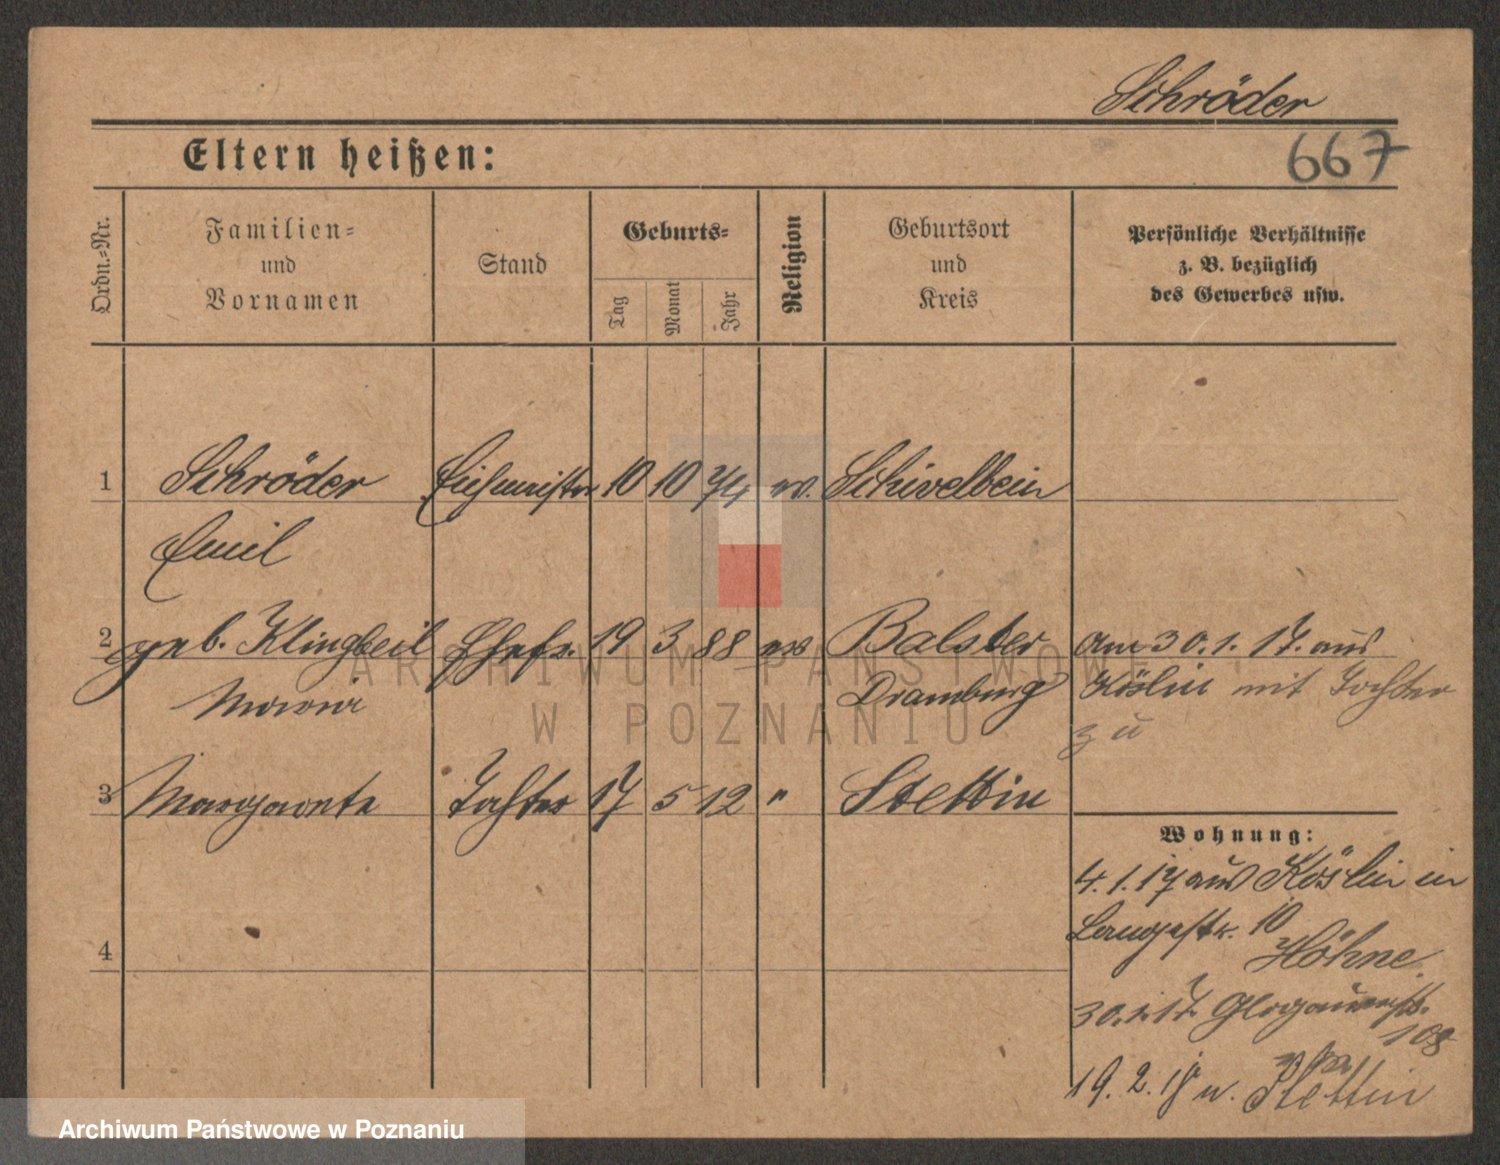 Schröder
667
Eltern heißen:
Ordn.-Nr.
Familien-
und
Vornamen
Stand
Geburts-
Tag
Monat
Jahr
Religion
Geburtsort
und
Kreis
Persönliche Verhältnisse
z. B. bezüglich
des Gewerbes usw.
1 Schröder Eichmeister 10 10 74 ev. Schivelbein
Emil
2 geb. Klingbeil Ehefr. 19 3 88 ev Balster am 30. 1. 17. aus
Maria Dramburg Köslin mit Tochter
zu
3 Margarete Tochter 17 5 12 " Stettin
Wohnung:
4. 1. 17 aus Köslin in
Langestr. 10
Höhne
4
30. 1. 17. Glogauerstr.
108
19. 2. 18 n. Stettin
ARCHIWUM PAŃSTWOWE
W POZNANIU
Archiwum Państwowe w Poznaniu